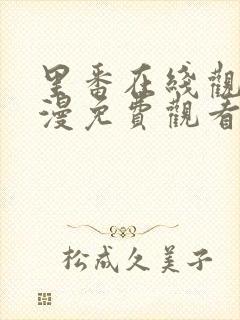 里番在线觀
漫免費觀看
松成久美子